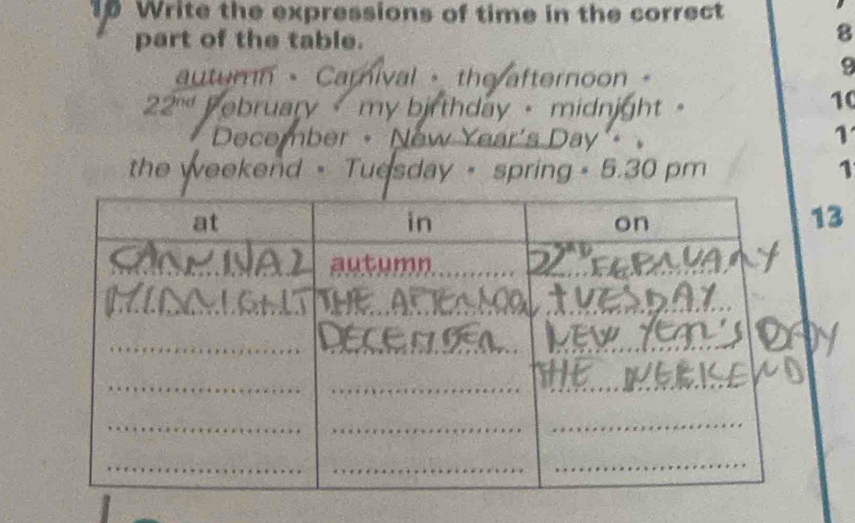 10 Write the expressions of time in the correct
part of the table.
autumn • Carnival • the afternoon •
22nd February • my birthday • midnight •
December • New Year's Day •
the weekend • Tuesday • spring • 5.30 pm
at in on
CARNIVAL autumn 22ND FEBRUARY
MIDNIGHT THE AFTERNOON TUESDAY
DECEMBER NEW YEAR'S DAY
THE WEEKEND
8
9
10
1
1
13